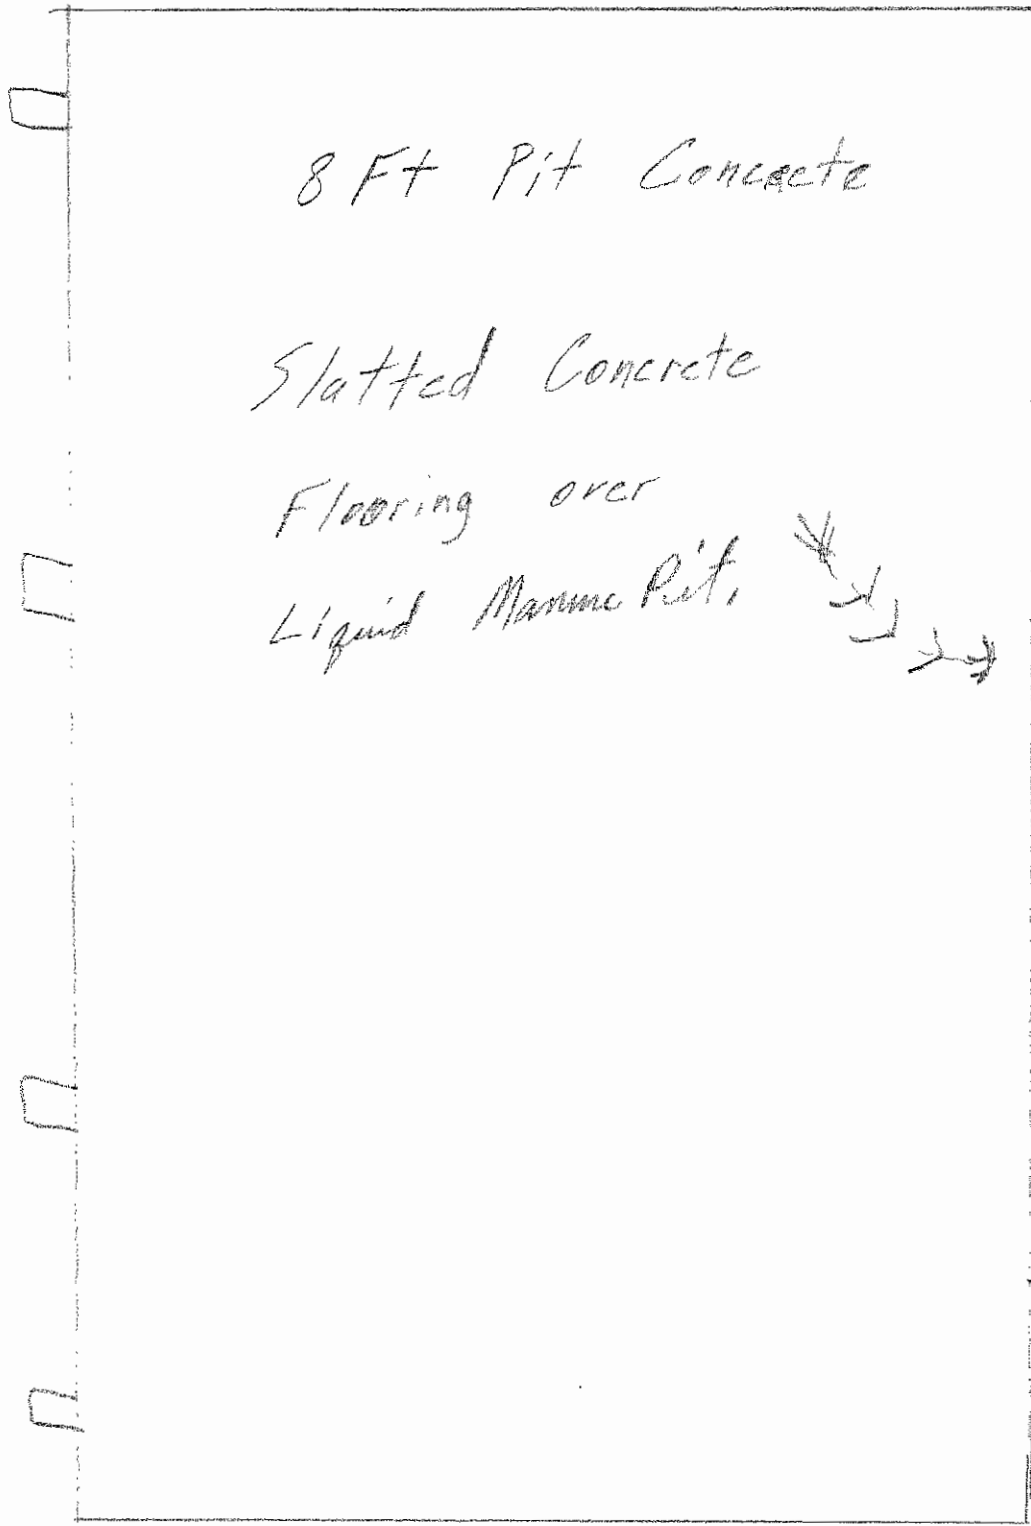 8 Ft Pit Concrete
Slatted Concrete
Flooring over
Liquid Manure Pit.